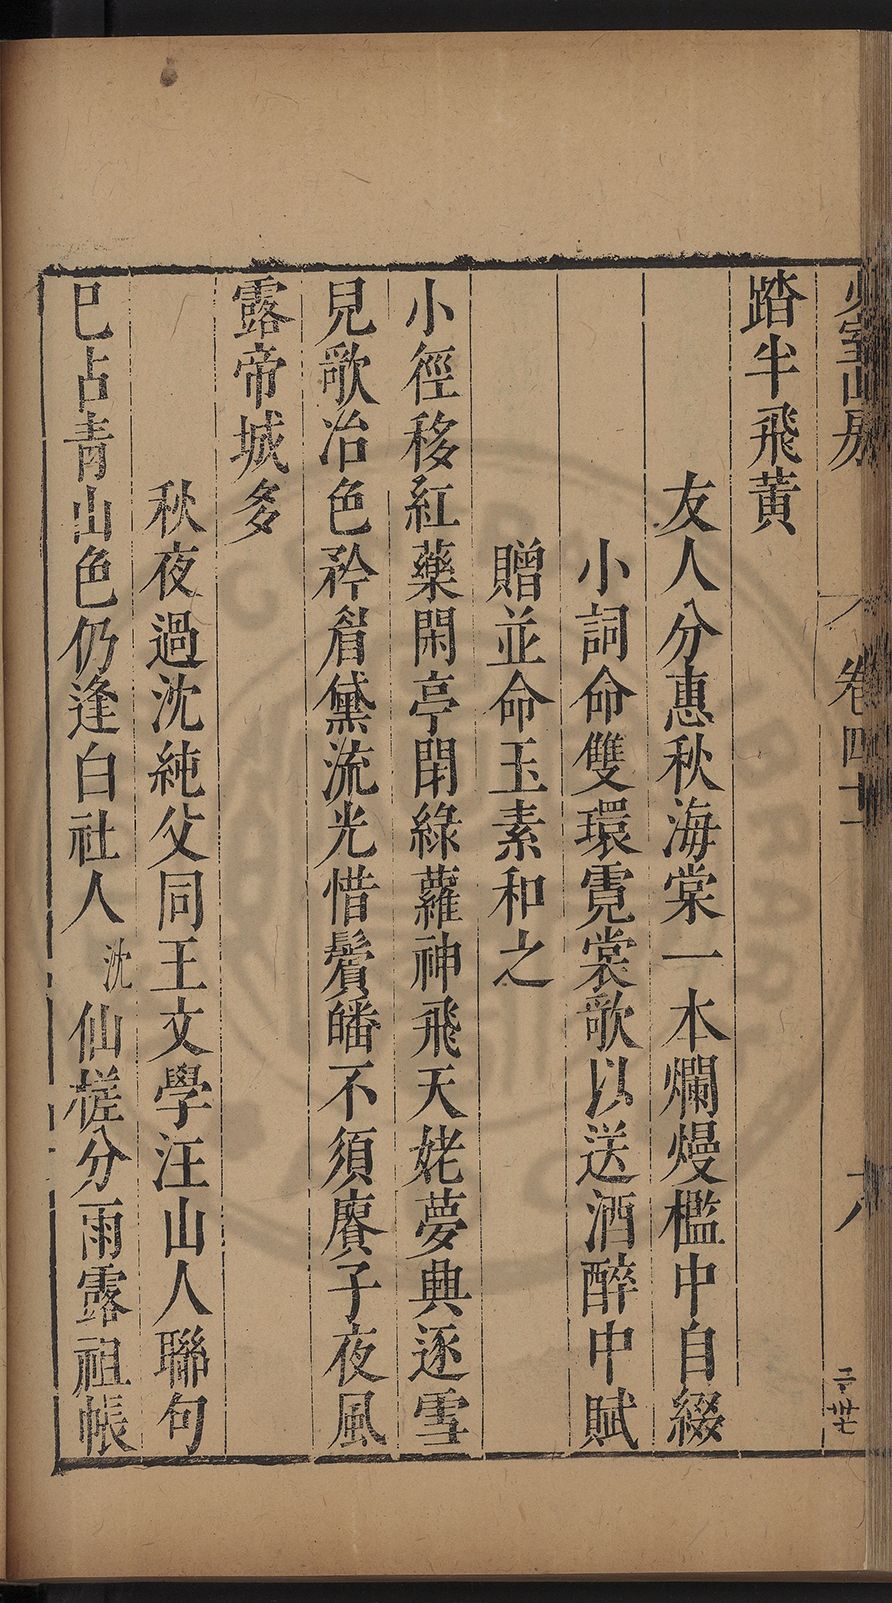 少室山房
卷四十
六
踏半飛黄
友人分惠秋海棠一本爛熳檻中自綴
小詞命雙環霓裳歌以送酒醉中賦
贈並命玉素和之
小徑移紅藥閑亭閉綠蘿神飛天姥夢典逐雪
見歌冶色矜眉黛流光惜鬢皤不須賡子夜風
露帝城多
秋夜過沈純父同王文學汪山人聯句
巳占青山色仍逢白社人沈仙槎分雨露祖帳